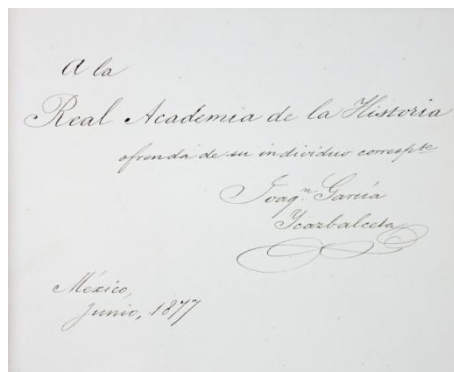 A la
Real Academia de la Historia
ofrenda de su individuo correspte
Joaqn. García
Ycazbalceta
México,
Junio, 1877